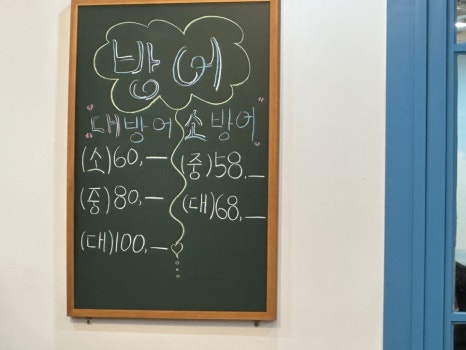 방어
"대방어 소방어"
(소)60,— (중)58,—
(중)80,— (대)68,—
(대)100,—